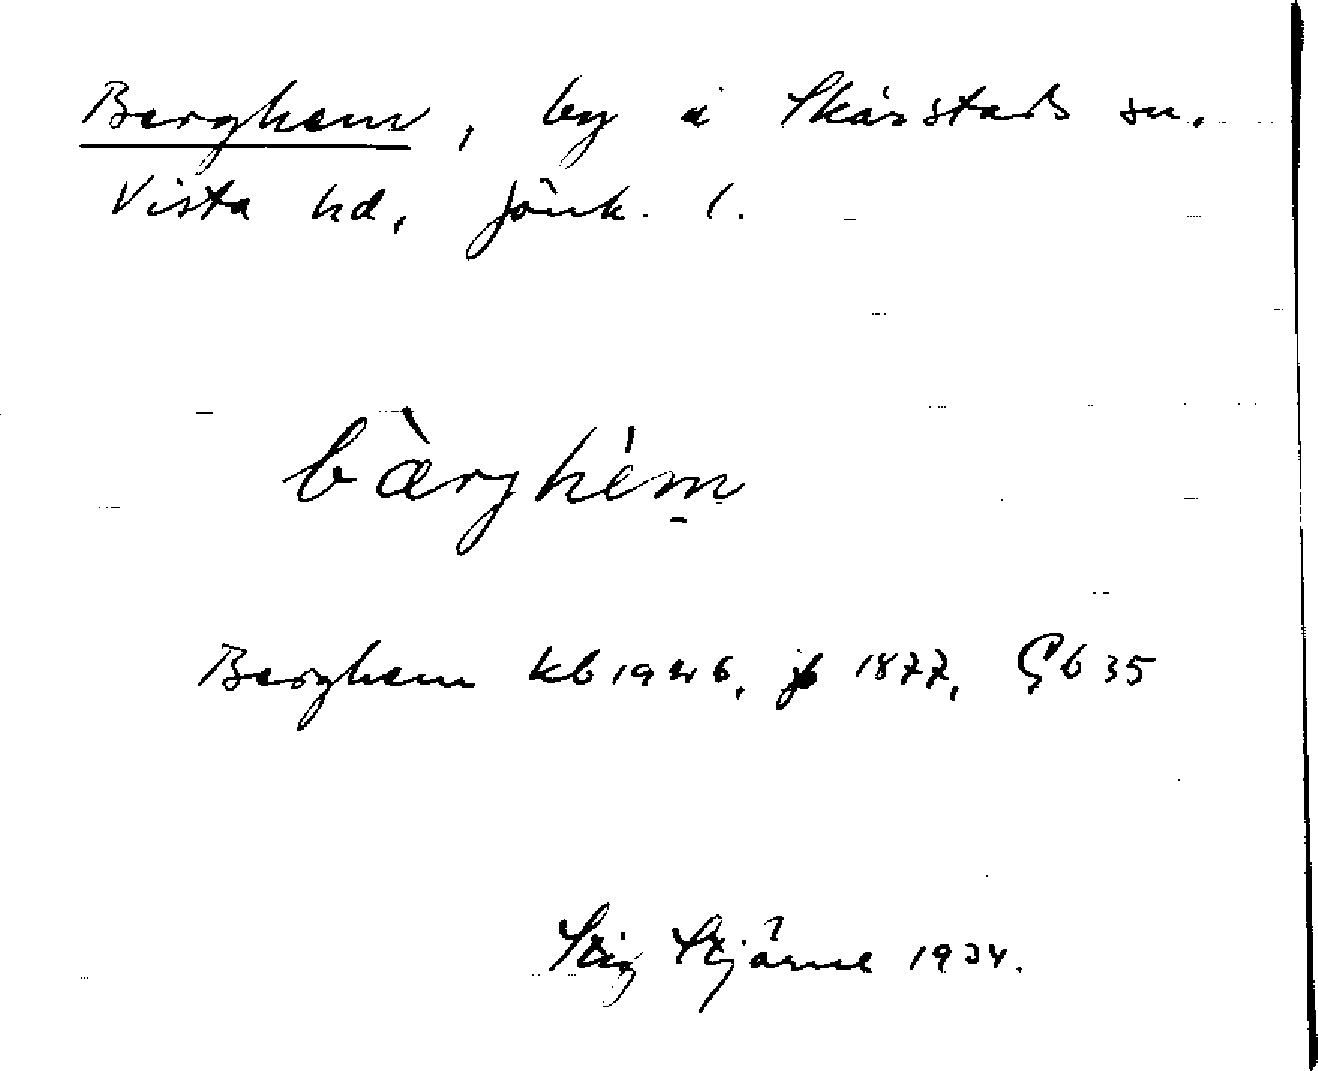 Berghem, by i Skärstads sn.
Vista hd, Jönk. l.
bàrghém
Berghem kb 1946, jb 1877, Gb 35
Stig Stjärne 1934.